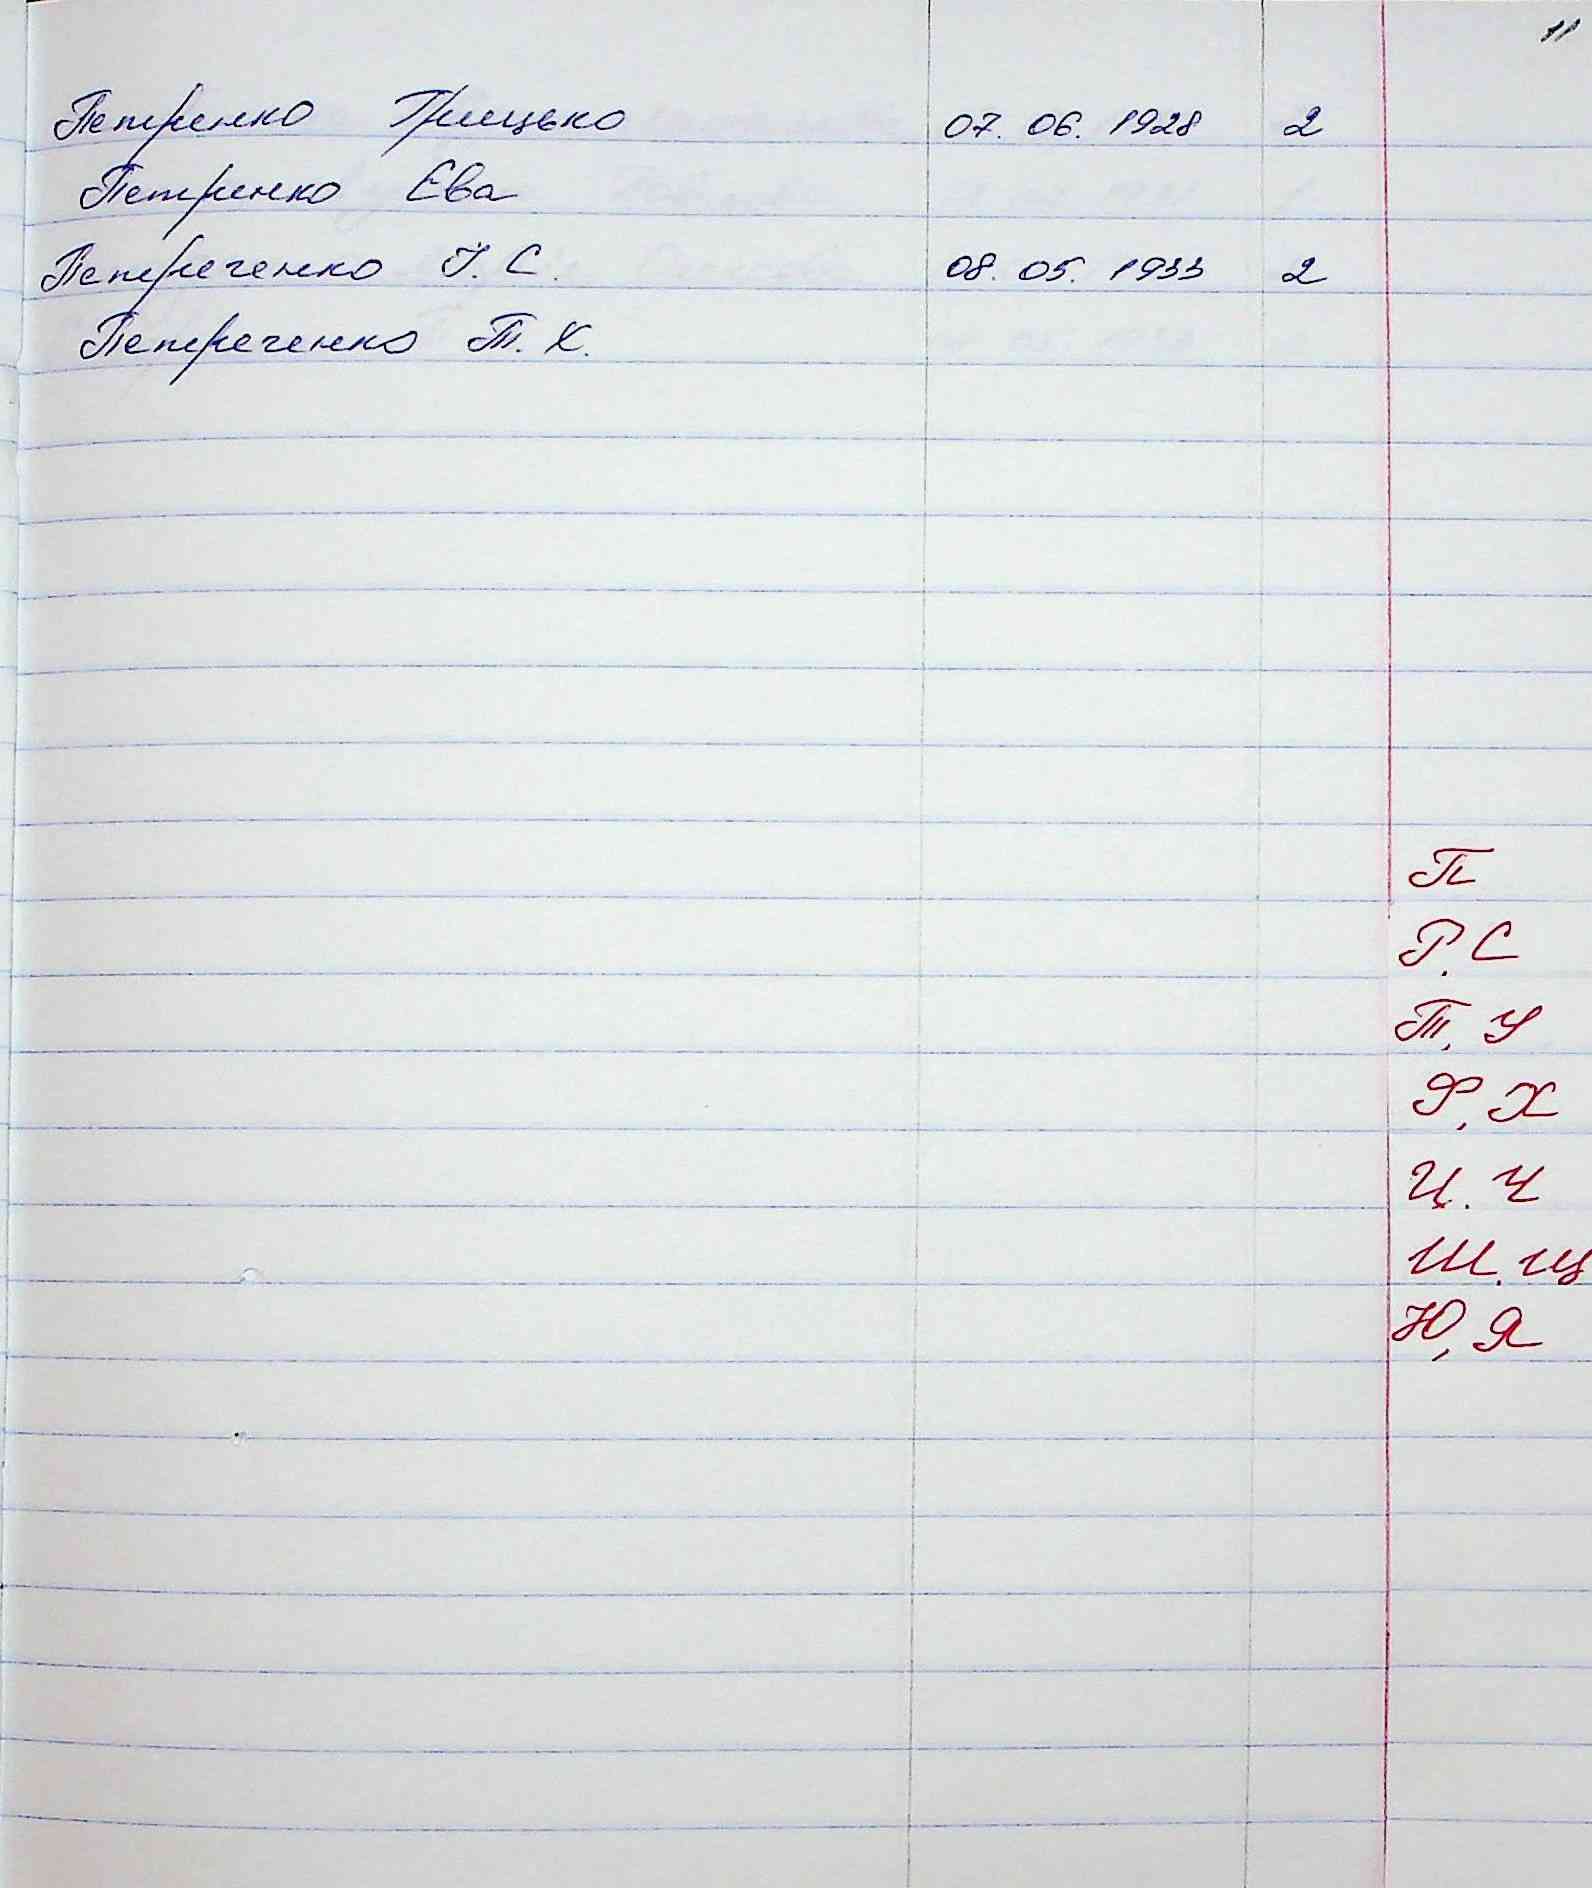 11
Петренко Грицько 07. 06. 1928 2
Петренко Ева
Петреченко І. С. 08. 05. 1933 2
Петреченко Т. Х.
П
Р. С
Т, У
Ф, Х
Ц. Ч
Ш. Щ
Ю, Я